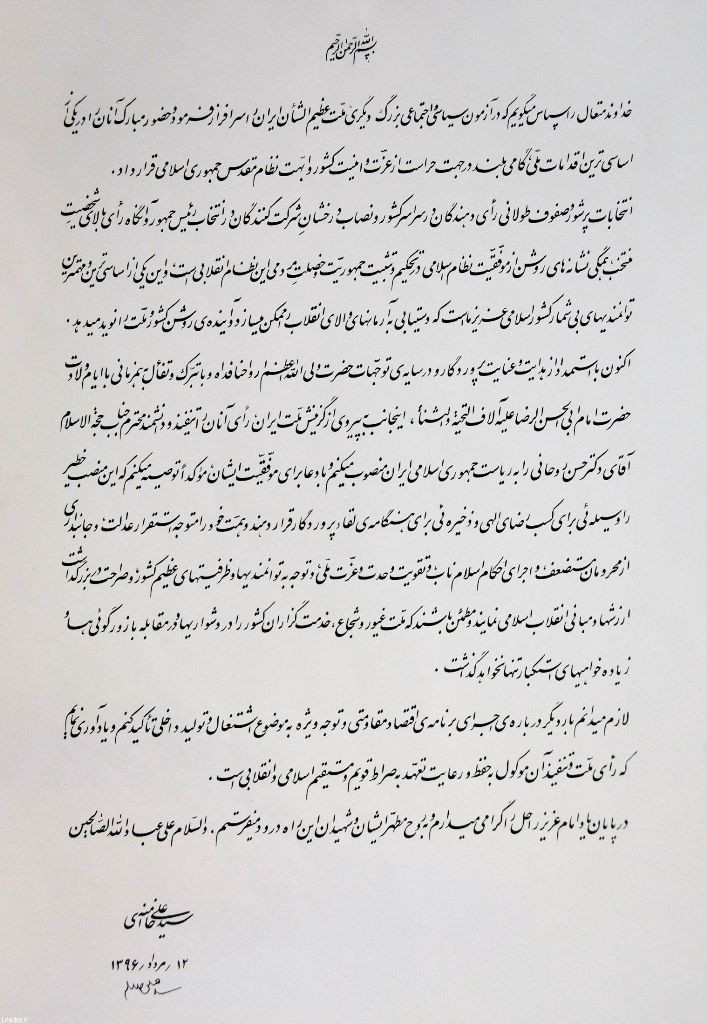 بسم الله الرحمن الرحیم
خداوند متعال را سپاس میگویم که در آزمون سیاسی و اجتماعی بزرگ دیگری ملّت عظیم‌الشأن ایران را سرافراز فرمود و حضور مبارک آنان را در یکی از
اساسی‌ترین اقدامات ملّی، گامی بلند در جهت حراست از عزّت و امنیت کشور و ابّهت نظام مقدس جمهوری اسلامی قرار داد.
انتخابات پرشور و صفوف طولانی رأی دهندگان در سراسر کشور و نصاب درخشان شرکت کنندگان در انتخاب رئیس جمهور و آنگاه رأی بالای شخصیت
منتخب، همگی نشانه‌های روشن از موفّقیّت نظام اسلامی در تحکیم و تثبیت جمهوریّت و خصلت مردمی این نظام انقلابی است، و این یکی از اساسی‌ترین و مهمترین
توانمندیهای بی‌شمار کشور اسلامی عزیز ماست که دستیابی به آرمانهای والای انقلاب را ممکن میسازد و آینده‌ی روشن کشور و ملّت را نوید میدهد.
اکنون با استمداد از هدایت و عنایت پروردگار و در سایه‌ی توجّهات حضرت ولی الله اعظم ارواحنافداه و با تبرّک و تفأل به همزمانی با ایام ولادت
حضرت امام ابی الحسن الرضا علیه آلاف التحیة والثناء، اینجانب به پیروی از گزینش ملّت ایران رأی آنان را تنفیذ و دانشمند محترم جناب حجّة الاسلام
آقای دکتر حسن روحانی را به ریاست جمهوری اسلامی ایران منصوب میکنم و با دعا برای موفّقیّت ایشان مؤکداً توصیه میکنم که این منصب خطیر
را وسیله‌ئی برای کسب رضای الهی و ذخیره‌ئی برای هنگامه‌ی لقاء پروردگار قرار دهند و همّت خود را متوجه استقرار عدالت، و جانبداری
از محرومان مستضعف، و اجرای احکام اسلام ناب و تقویت وحدت و عزّت ملّی، و توجه به توانمندیها و ظرفیتهای عظیم کشور، و صراحت در بزرگداشت
ارزشها و مبانی انقلاب اسلامی نمایند و مطمئن باشند که ملّت غیور و شجاع، خدمت‌گزاران کشور را در دشواریها و در مقابله با زورگوئی‌ها و
زیاده خواهیهای استکبار تنها نخواهد گذاشت.
لازم میدانم بار دیگر درباره‌ی اجرای برنامه‌ی اقتصاد مقاومتی و توجه ویژه به موضوع اشتغال و تولید داخلی تأکید کنم و یادآوری نمایم
که رأی ملّت و تنفیذ آن موکول به حفظ و رعایت تعهّد به صراط قویم و مستقیم اسلامی و انقلابی است.
در پایان یاد امام عزیز راحل را گرامی میدارم و به روح مطهّر ایشان و شهیدان این راه درود میفرستم. والسّلام علی عباد الله الصّالحین
سید علی خامنه‌ای
۱۲ / مرداد / ۱۳۹۶
Leader.ir